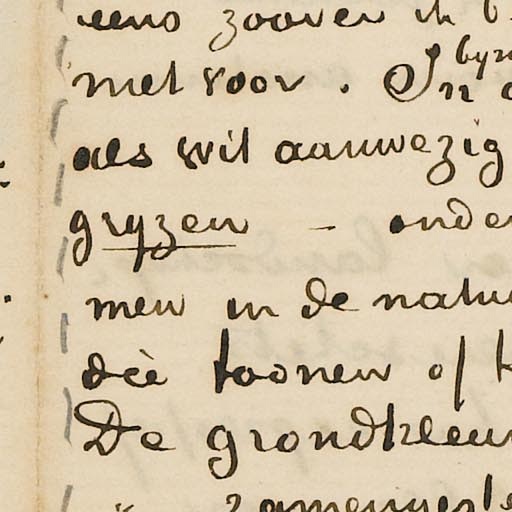 eens zoover ik
met voor. In
byn
als wit aanwezig
gryzen – onder
men in de natu
diè toonen of k
De grondkleur
zamengeste